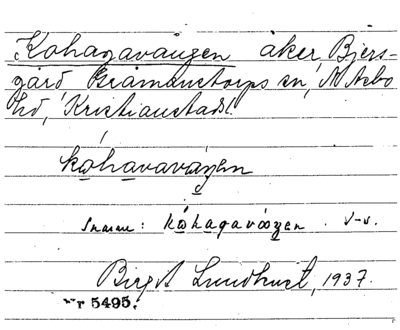 Kohagavången åker, Bjers-
gård Gråmanstorps sn, N Åsbo
hd, Kristianstads l.
kohavavången
Snarare: kohagavången. V-v.
Birgit Lundhurst, 1937.
Nr 5495.